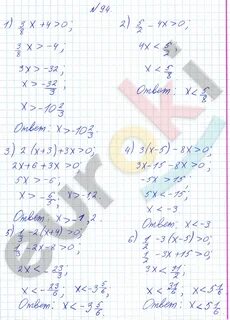 № 94
1) 3/8 x + 4 > 0;
3/8 x > -4,
3x > -32,
x > -32/3,
x > -10 2/3
Ответ: x > -10 2/3.
2) 5/2 - 4x > 0;
4x < 5/2
x < 5/8
Ответ: x < 5/8
3) 2(x+3)+3x > 0;
2x+6+3x > 0
5x > -6;
x > -6/5; x > -1,2
Ответ: x > -1,2.
4) 3(x-5)-8x > 0;
3x-15-8x > 0;
-5x > 15
5x < -15;
x < -3
Ответ: x < -3
5) 1/3 - 2(x+4) > 0;
1/3 - 2x - 8 > 0;
2x < -23/3;
x < -23/6; x < -3 5/6;
Ответ: x < -3 5/6.
6) 1/2 - 3(x-5) > 0;
1/2 - 3x + 15 > 0;
3x < 31/2;
x < 31/6; x < 5 1/6
Ответ: x < 5 1/6
euroki